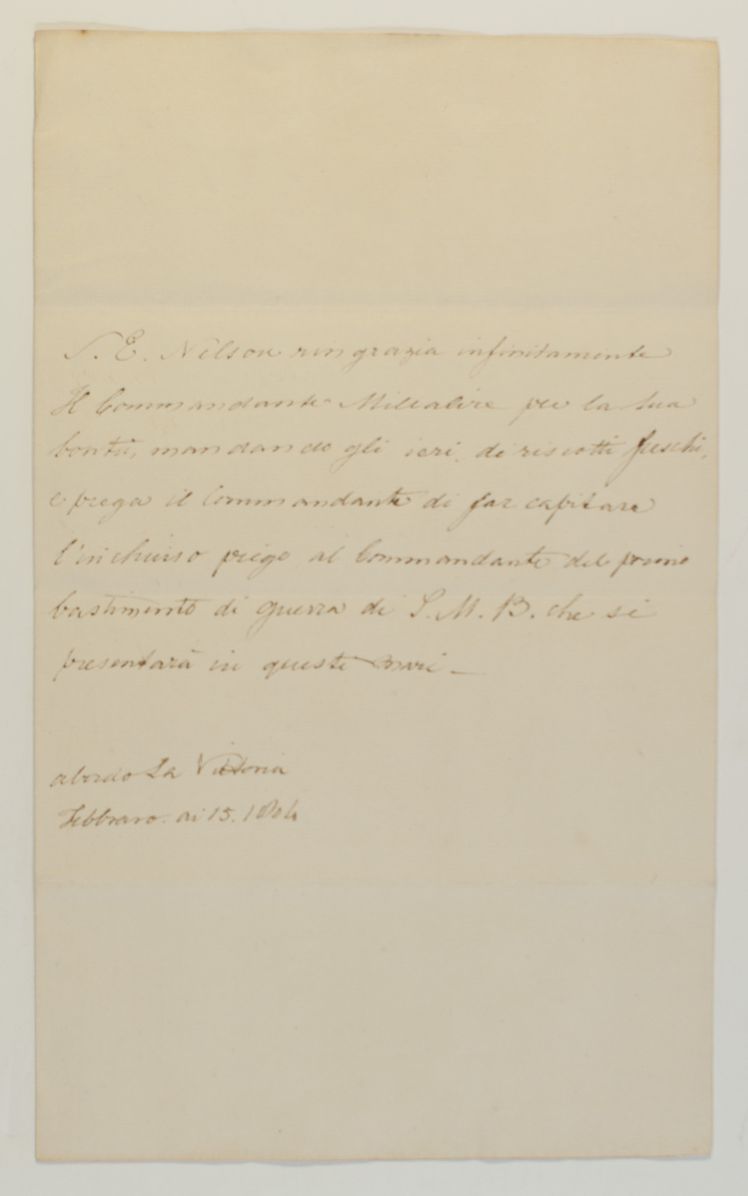 S. E. Nelson ringrazia infinitamente
Il Commandante Millelire per la sua
bontà, mandando gli ieri, di riscotti freschi,
e prega il Commandante di far capitare
l'inchiuso piego al Commandante del primo
bastimento di guerra di S. M. B. che si
presentarà in questi mari _
abordo La Vittoria
Febbraro. ai 15. 1804